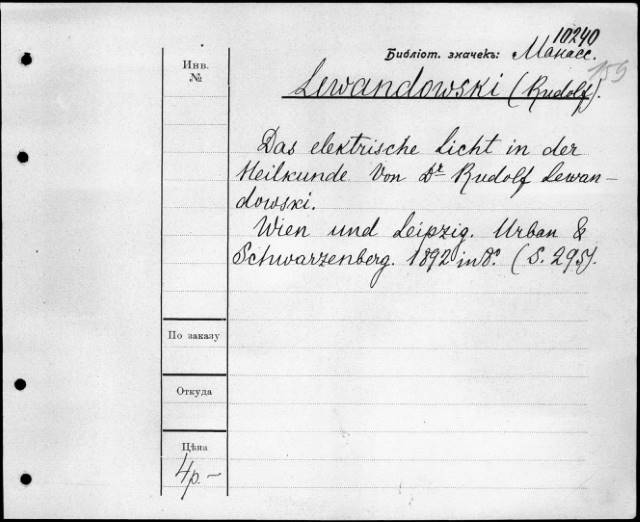 10240
Библіот. значекъ: Манасс.
155
Инв.
№
Lewandowski (Rudolf).
Das elektrische Licht in der
Heilkunde von Dr Rudolf Lewan-
dowski.
Wien und Leipzig. Urban &
Schwarzenberg. 1892 in 8º. (S. 295).
По заказу
Откуда
Цѣна
4р.-